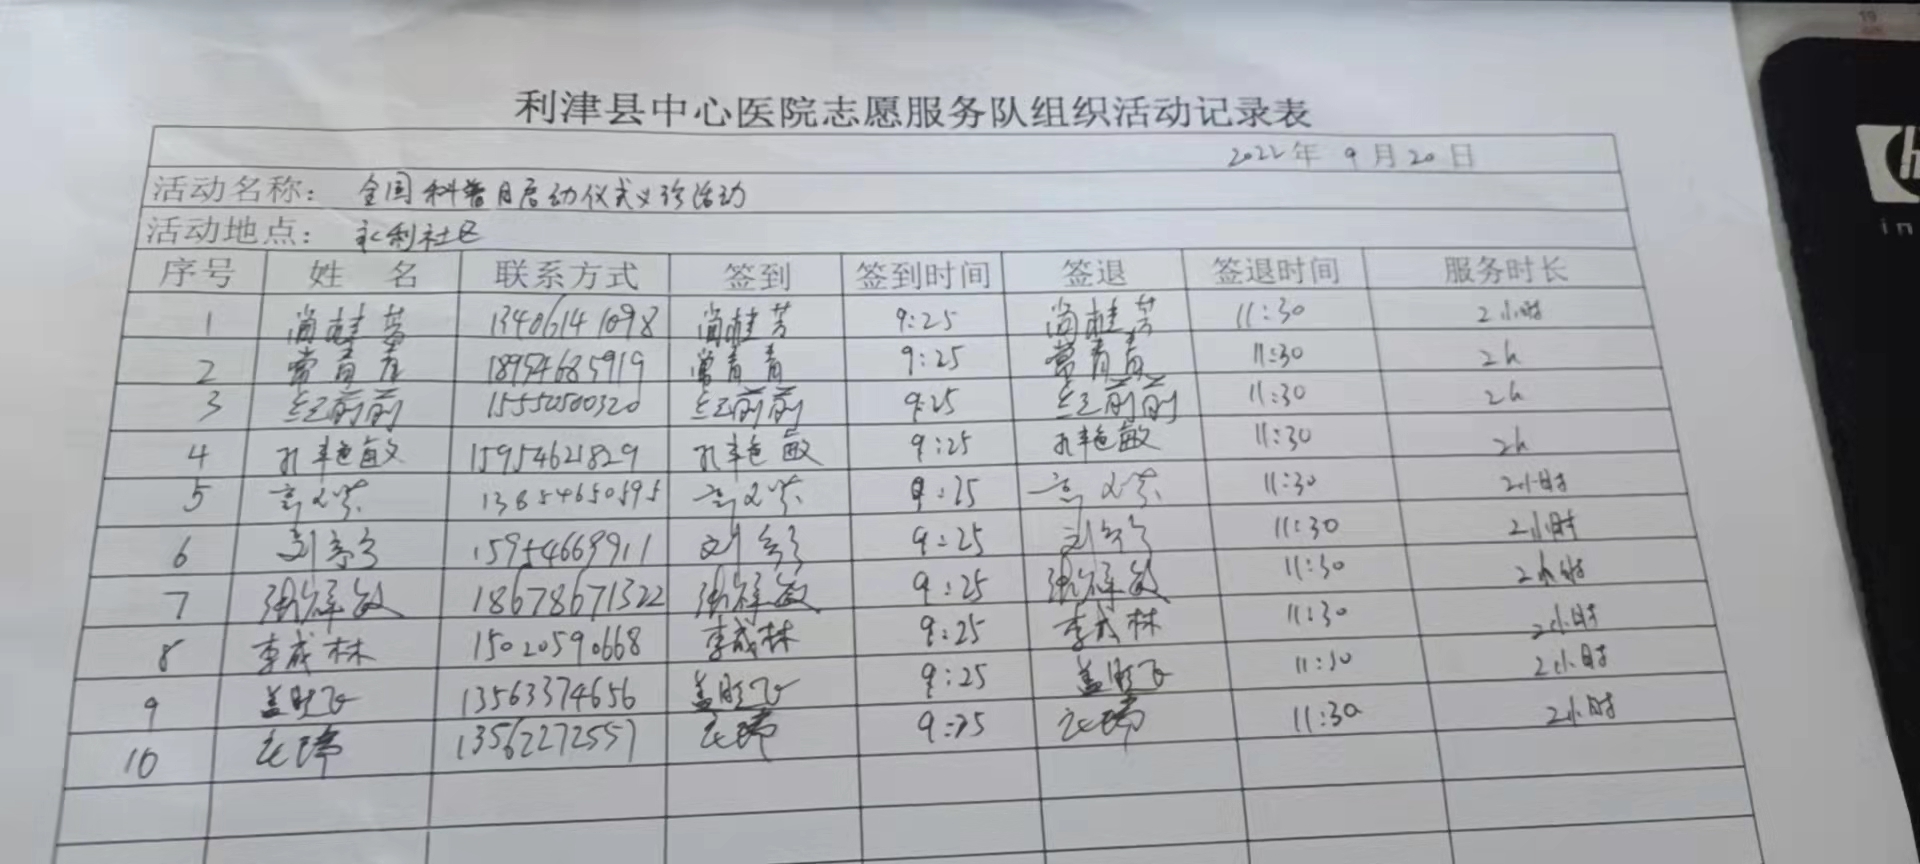 利津县中心医院志愿服务队组织活动记录表
2022年 9月20日
活动名称: 全国科普日启动仪式义诊活动
活动地点: 永利社区
序号 姓 名 联系方式 签到 签到时间 签退 签退时间 服务时长
1 尚桂芳 13406141098 尚桂芳 9:25 尚桂芳 11:30 2小时
2 常青青 18954685919 常青青 9:25 常青青 11:30 2h
3 纪前前 15550500320 纪前前 9:25 纪前前 11:30 2h
4 孔艳敏 15954621829 孔艳敏 9:25 孔艳敏 11:30 2h
5 13854650595 9:25 11:30 2小时
6 15954669911 9:25 11:30 2小时
7 18678671322 9:25 11:30 2小时
8 李成林 15020590668 李成林 9:25 李成林 11:30 2小时
9 13563374656 9:25 11:30 2小时
10 13562272557 9:25 11:30 2小时
hp
in